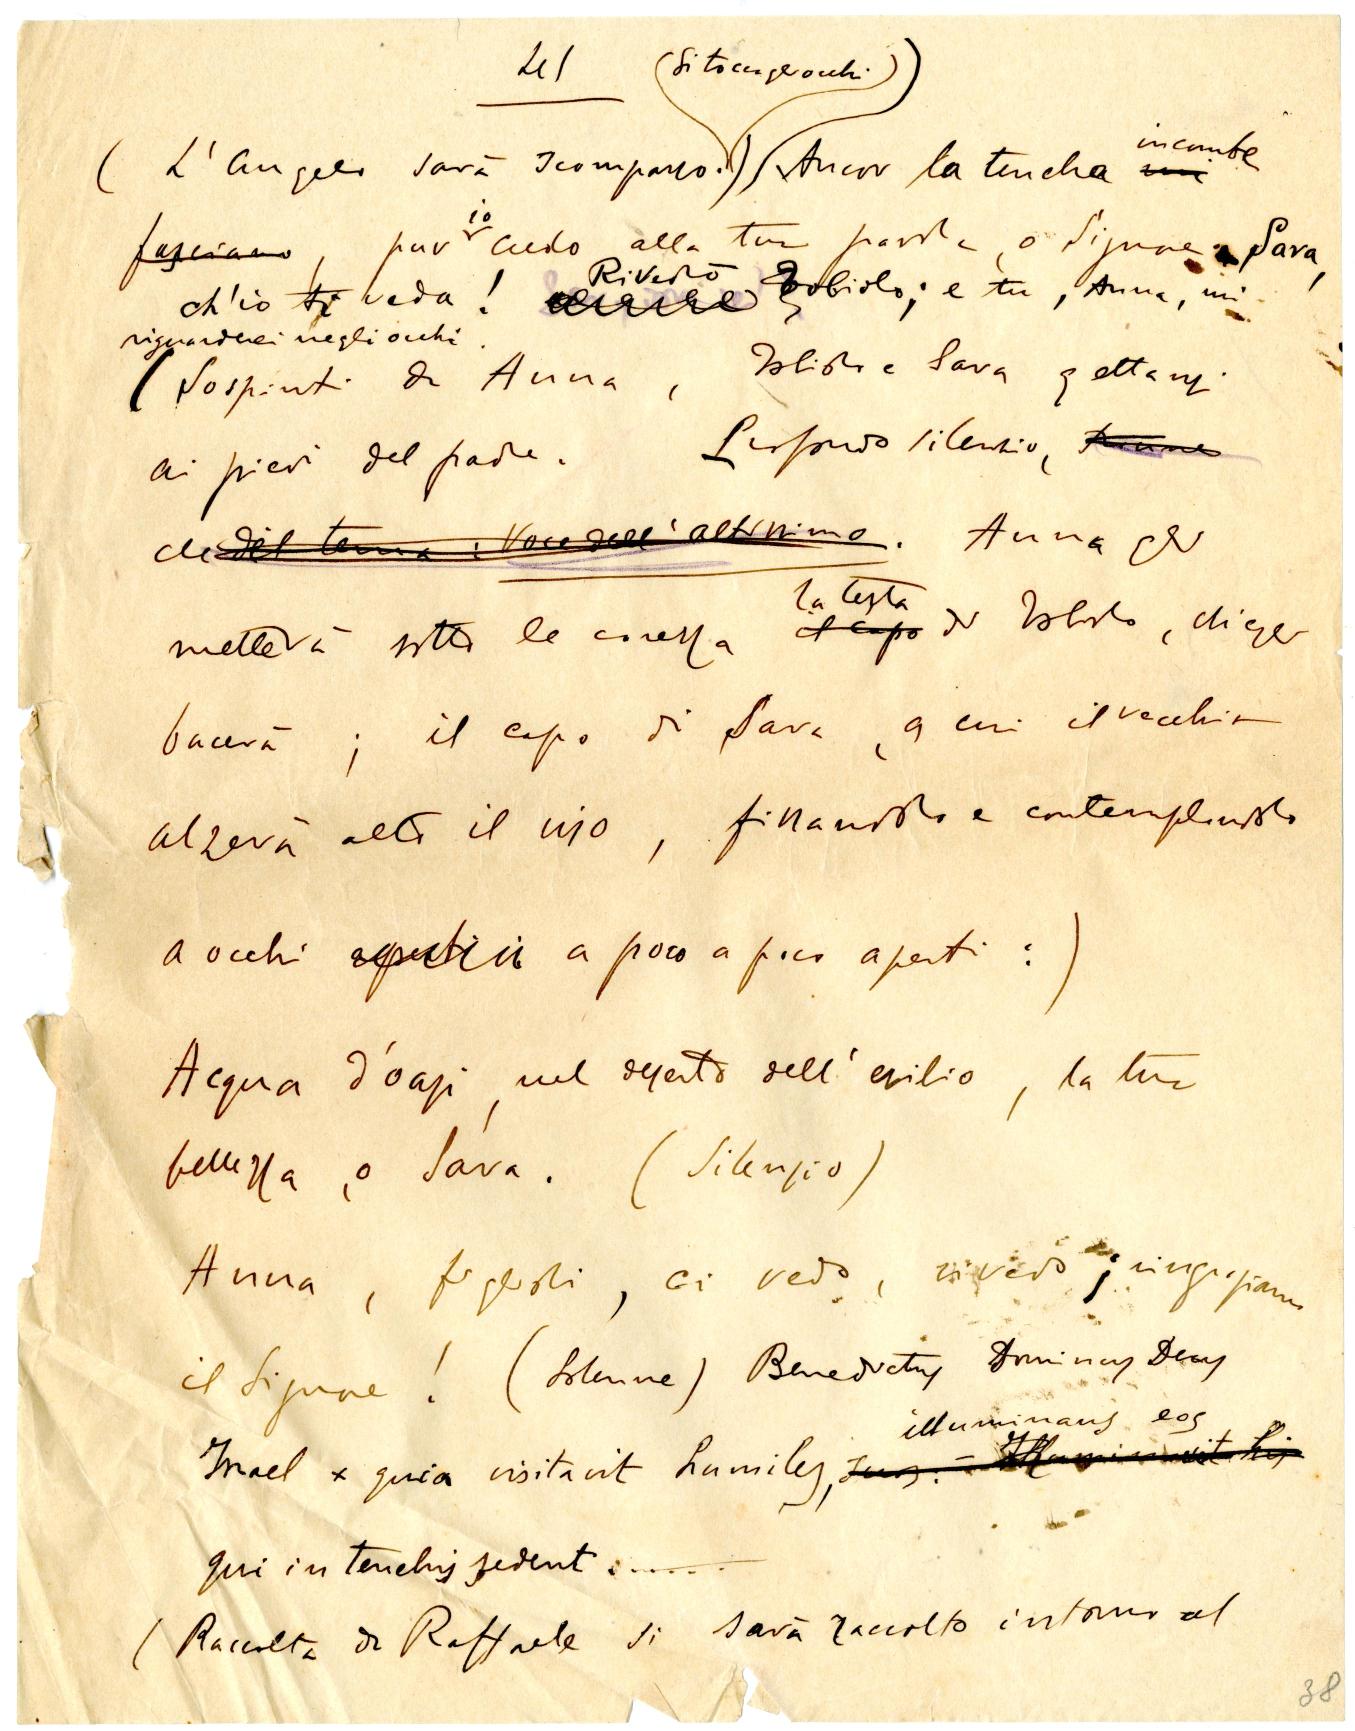 (si tocca gli occhi)
( L'Angelo sarà scomparso.) Ancor la tenebra incombe
fasciano, pur io credo alla tua parola, o Signore. Sara,
ch'io ti veda! Rivedrò Tobiolo; e tu, Anna, mi
riguarderai negli occhi.
( Sospinti da Anna, Tobiolo e Sara gettansi
ai piedi del padre. Profondo silenzio,
del tema: Voce dell'altissimo. Anna gli
metterà sotto le la testa il capo di Tobiolo, ch'egli
bacerà; il capo di Sara, a cui il vecchio
alzerà alto il viso, fissandolo e contemplandolo
a occhi a poco a poco aperti :)
Acqua d'oasi, nel deserto dell'esilio, la tua
bellezza, o Sara. (Silenzio)
Anna, figlioli, ci vedo, rivedo; ringraziamo
il Signore! (Solenne) Benedictus Dominus Deus
Israel x quia visitavit humiles, illuminans eos
qui in tenebris sedent.......
( Raccolta di Raffaele si sarà raccolto intorno al
38